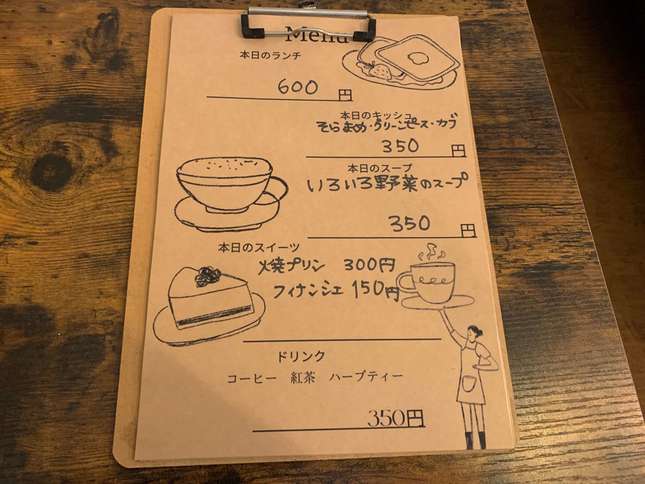 Menu
本日のランチ
600 円
本日のキッシュ
そらまめ・グリーンピース・カブ
350 円
本日のスープ
いろいろ野菜のスープ
350 円
本日のスイーツ
焼プリン 300円
フィナンシェ 150円
ドリンク
コーヒー 紅茶 ハーブティー
350円